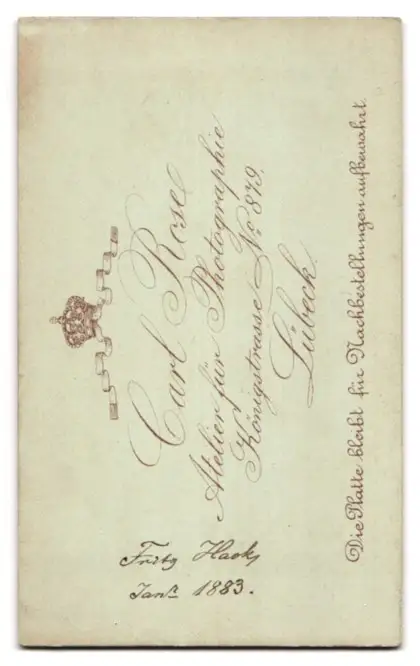 Carl Rose
Atelier für Photographie
Königstrasse No. 879.
Lübeck.
Die Platte bleibt für Nachbestellungen aufbewahrt.
Fritz Haak,
Janr. 1883.